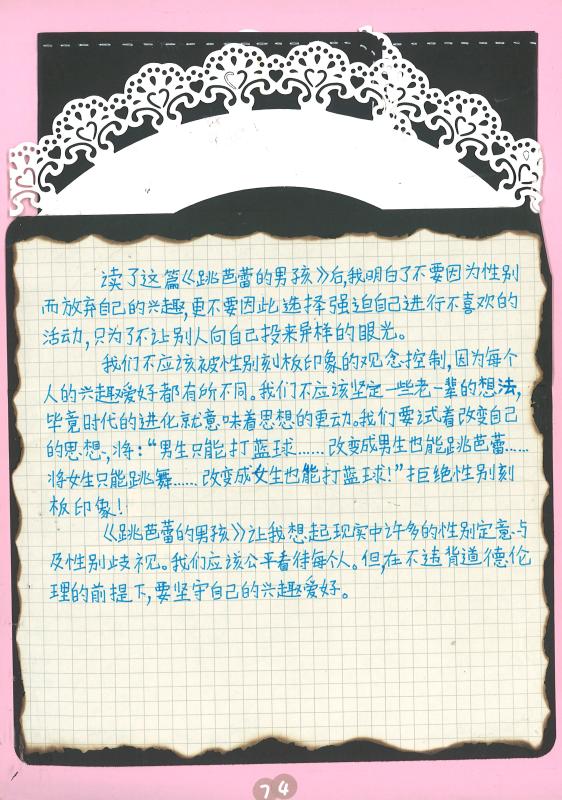 读了这篇《跳芭蕾的男孩》后,我明白了不要因为性别
而放弃自己的兴趣,更不要因此选择强迫自己进行不喜欢的
活动,只为了不让别人向自己投来异样的眼光。
我们不应该被性别刻板印象的观念控制,因为每个
人的兴趣爱好都有所不同。我们不应该坚定一些老一辈的想法,
毕竟时代的进化就意味着思想的更动。我们要试着改变自己
的思想,将:“男生只能打蓝球……改变成男生也能跳芭蕾……
将女生只能跳舞……改变成女生也能打蓝球!”拒绝性别刻
板印象!
《跳芭蕾的男孩》让我想起现实中许多的性别定意与
及性别歧视。我们应该公平看待每个人。但,在不违背道德伦
理的前提下,要坚守自己的兴趣爱好。
74